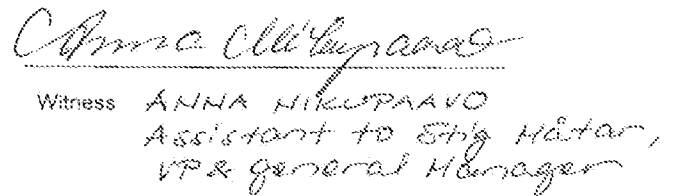 Anna Nikupaavo
Witness ANNA NIKUPAAVO
Assistant to Stig Håtar,
VP & general Manager